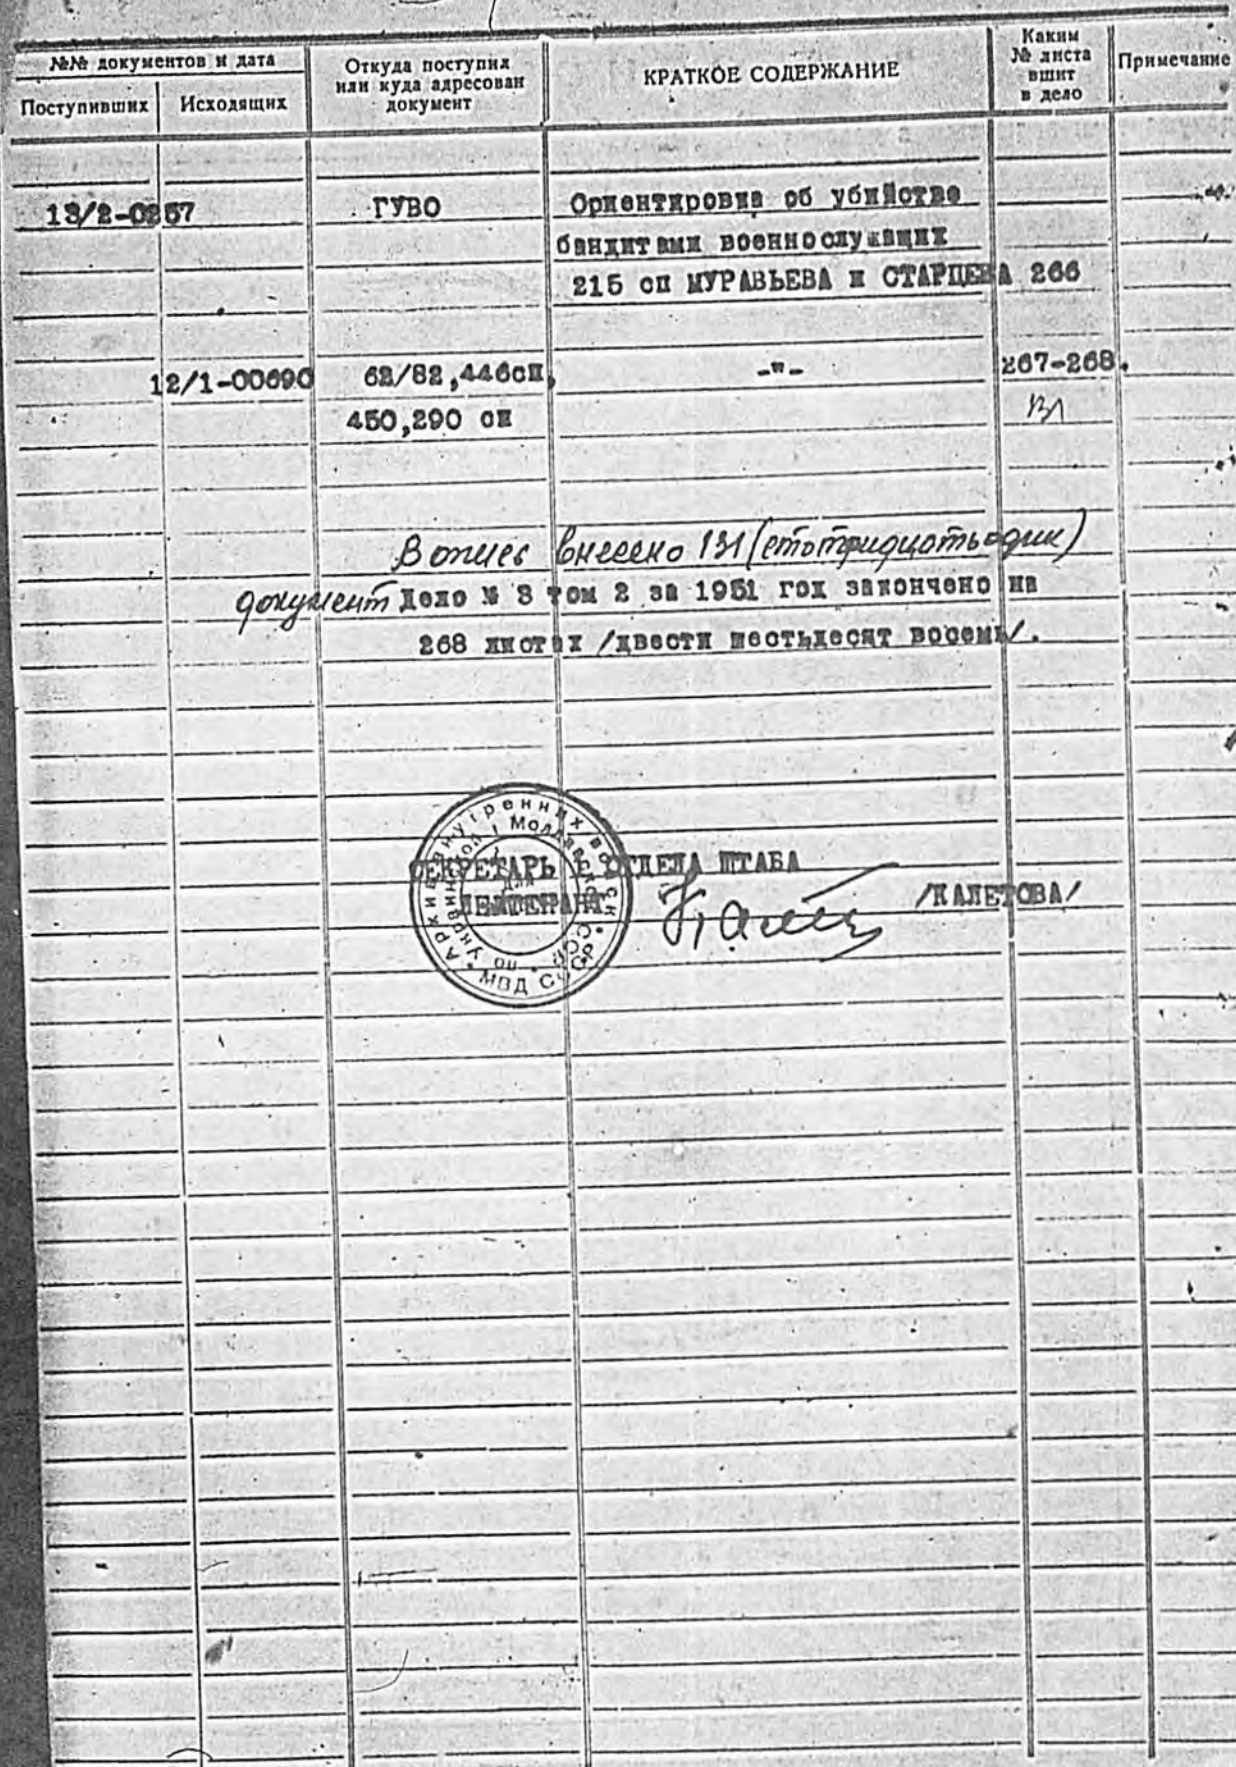 №№ документов и дата
Поступивших
Исходящих
Откуда поступил
или куда адресован
документ
КРАТКОЕ СОДЕРЖАНИЕ
Каким
№ листа
вшит
в дело
Примечание
13/2-0257 ГУВО Ориентировка об убийстве
бандитами военнослужащих
215 сп МУРАВЬЕВА и СТАРЦЕВА 266
12/1-00690 62/82,446сп, -"- 267-268.
450,290 сп 131
В опись внесено 131 (стотридцатьодин)
документ Дело № 3 том 2 за 1951 год закончено на
268 листах /двести шестьдесят восемь/.
СЕКРЕТАРЬ ОТДЕЛА ШТАБА
ЛЕЙТЕНАНТ /КАЛЕТОВА/
Архив внутренних войск
МВД СССР